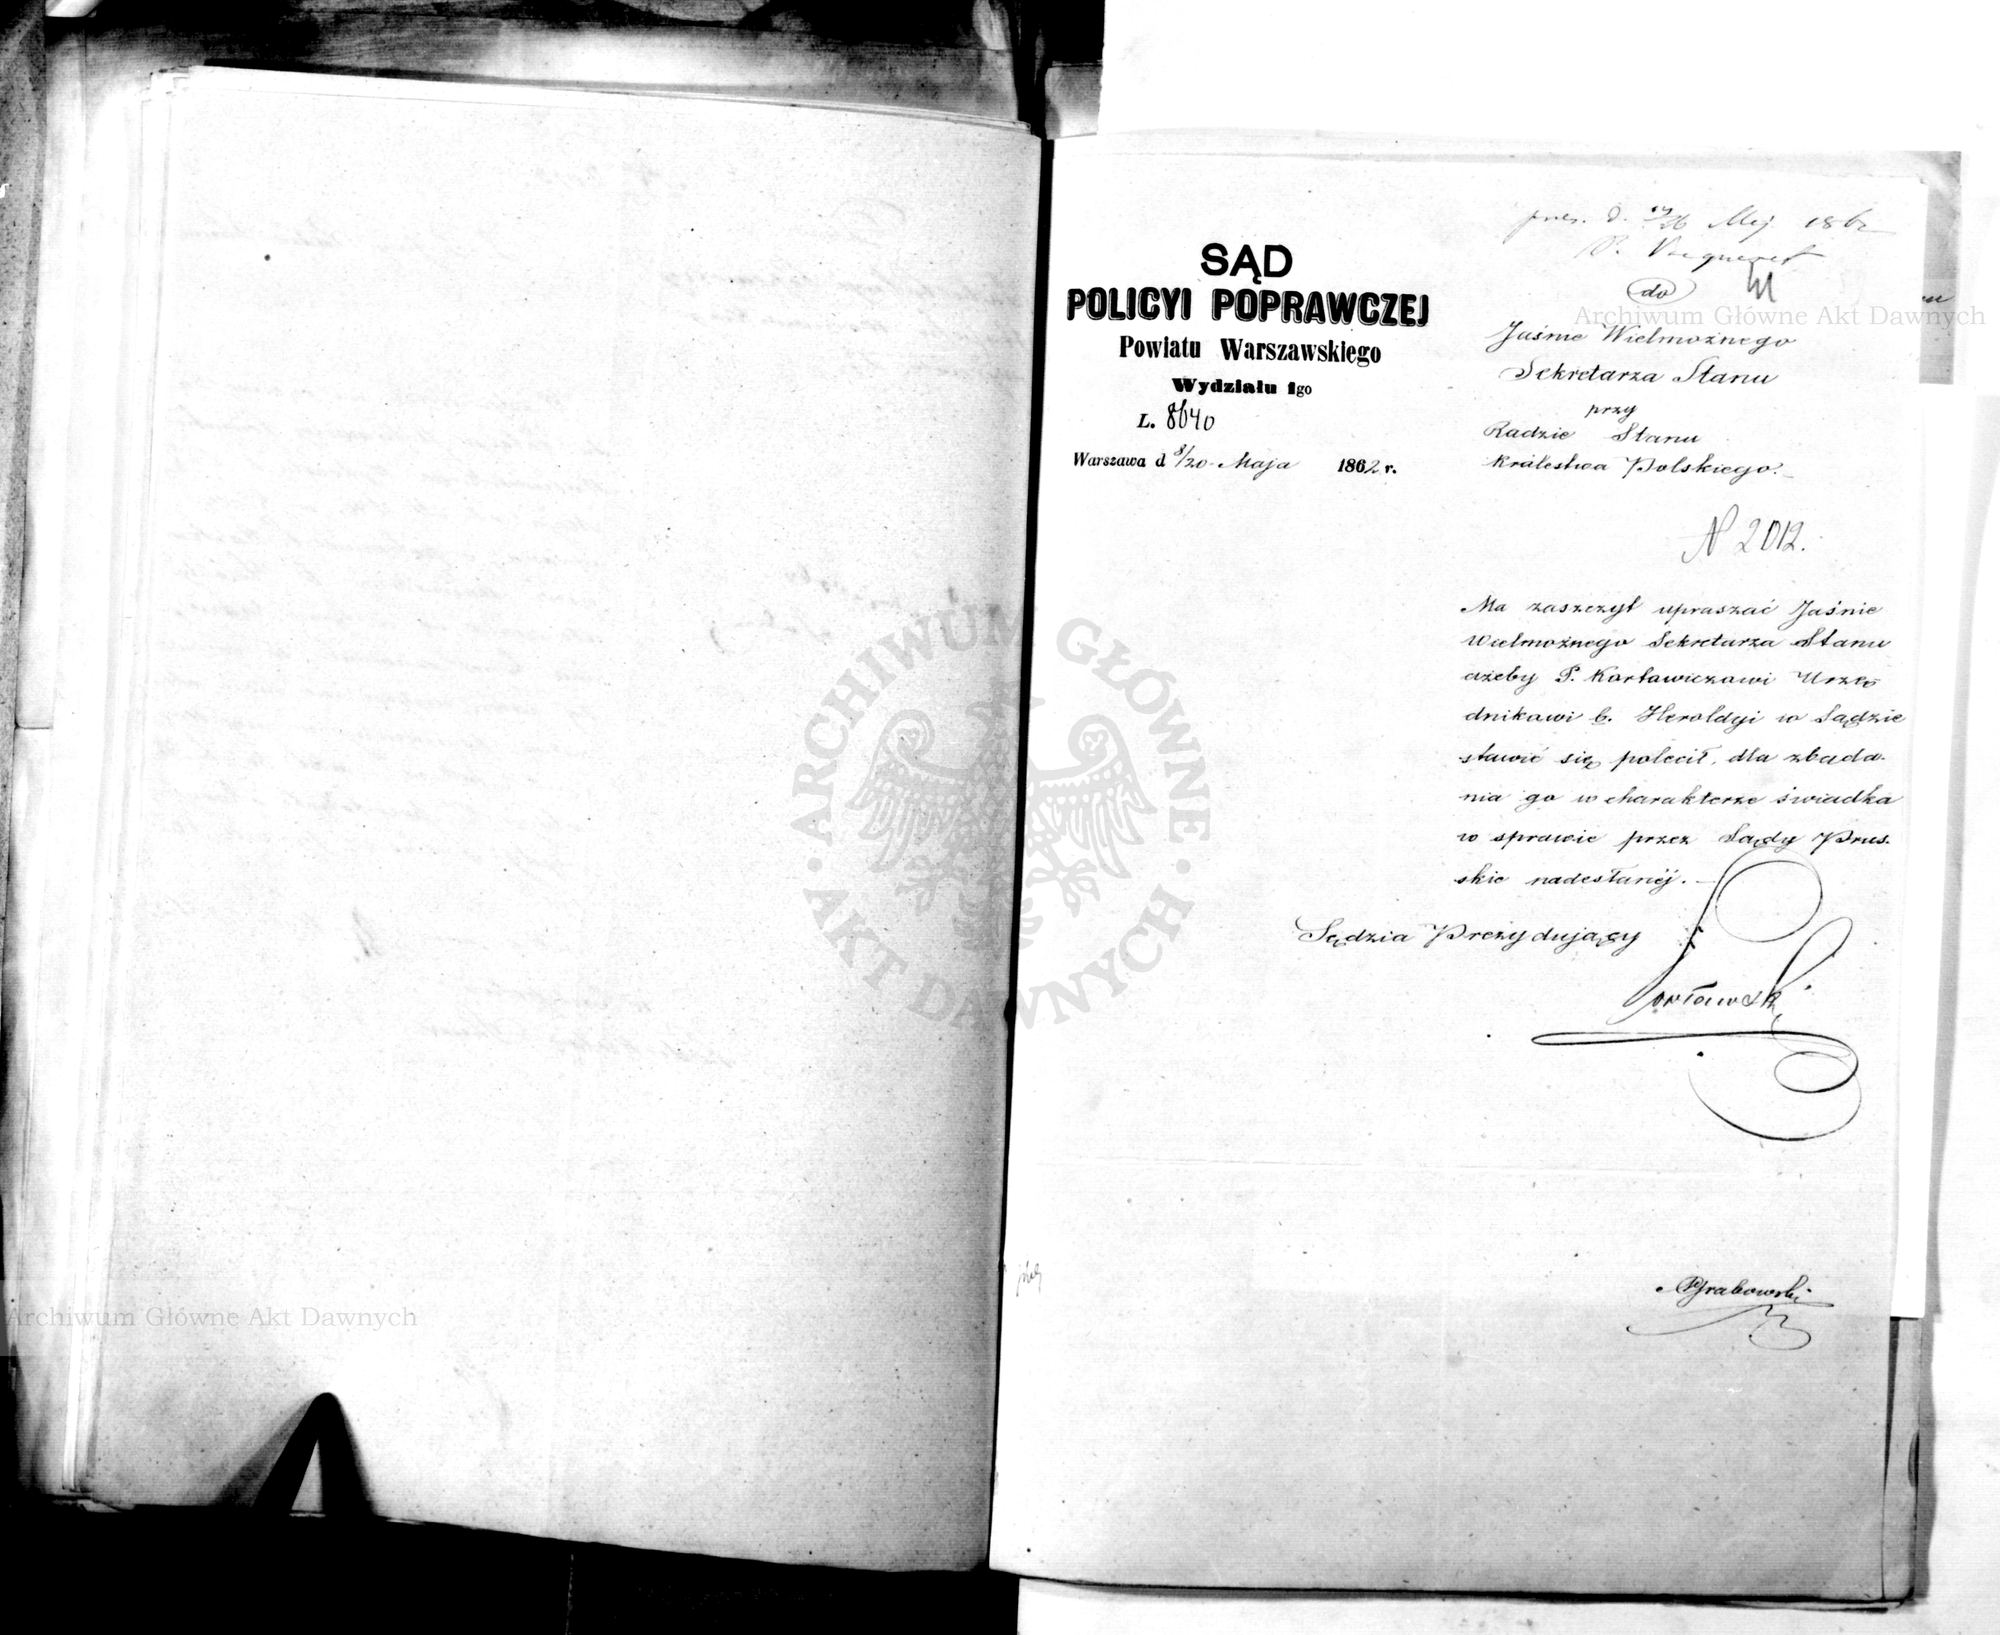 SĄD
POLICYI POPRAWCZEJ
Powiatu Warszawskiego
Wydziału 1go
L. 8640
Warszawa d 8/20 Maja 1862 r.
prez. d. 14/26 Maj 1862
do
Jaśnie Wielmożnego
Sekretarza Stanu
przy
Radzie Stanu
Królestwa Polskiego.
N 2012.
Ma zaszczyt upraszać Jaśnie
Wielmożnego Sekretarza Stanu
ażeby P. Karłowiczowi Urzę
dnikowi b. Heroldyi w Sądzie
stawić się polecił, dla zbada-
nia go w charakterze świadka
w sprawie przez Sądy Prus-
skie nadesłanéj.
Sędzia Prezydujący
Grabowski
Archiwum Główne Akt Dawnych
Archiwum Główne Akt Dawnych
ARCHIWUM GŁÓWNE · AKT DAWNYCH ·